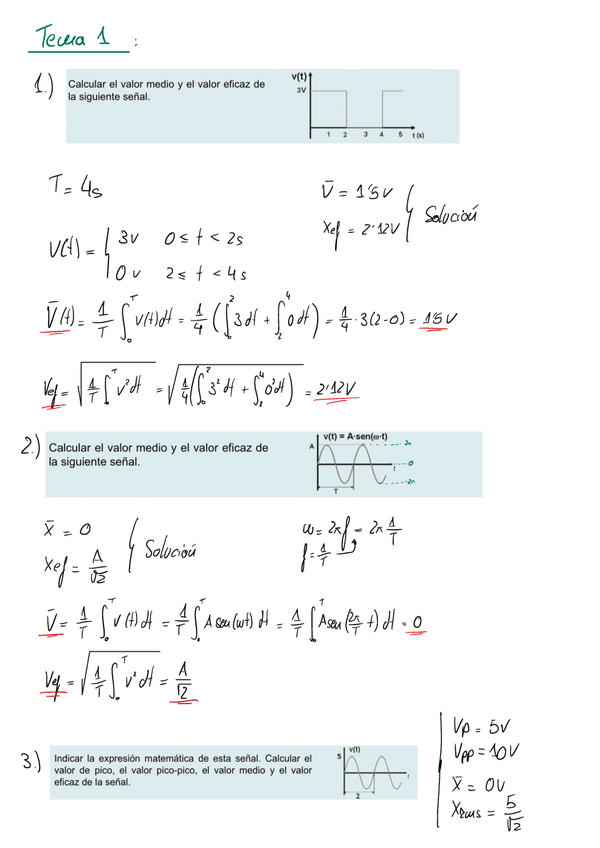 Tema 1 :
1.) Calcular el valor medio y el valor eficaz de
la siguiente señal.
v(t)
3V
1 2 3 4 5 t (s)
T = 4s
V̄ = 1'5V
Xef = 2'12V } Solución
V(t) = { 3V 0 ≤ t < 2s
0V 2 ≤ t < 4s
V̄(t) = 1/T ∫₀ᵀ v(t)dt = 1/4 (∫₀² 3dt + ∫₂⁴ 0dt) = 1/4 · 3(2-0) = 1'5V
Vef = √(1/T ∫₀ᵀ v²dt) = √(1/4 (∫₀² 3²dt + ∫₂⁴ 0²dt)) = 2'12V
2.) Calcular el valor medio y el valor eficaz de
la siguiente señal.
v(t) = A·sen(ω·t)
A
t
T
x̄ = 0
Xef = A/√2 } Solución
ω = 2πf = 2π 1/T
f = 1/T
V̄ = 1/T ∫₀ᵀ v(t)dt = 1/T ∫₀ᵀ A sen(ωt)dt = 1/T ∫₀ᵀ A sen(2π/T t)dt = 0
Vef = √(1/T ∫₀ᵀ v²dt) = A/√2
3.) Indicar la expresión matemática de esta señal. Calcular el
valor de pico, el valor pico-pico, el valor medio y el valor
eficaz de la señal.
v(t)
5
t
2
Vp = 5V
Vpp = 10V
x̄ = 0V
XRMS = 5/√2